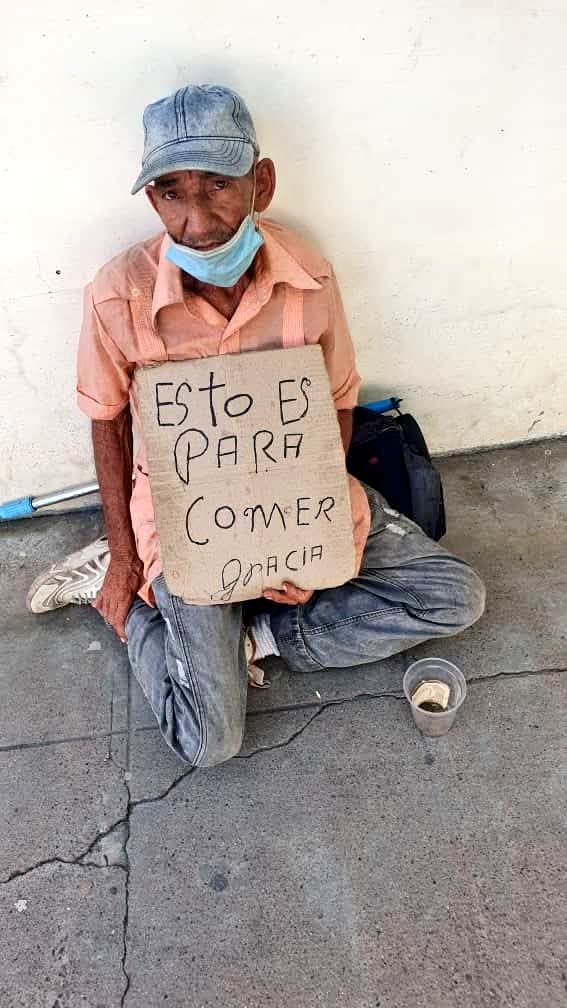 ESTO ES
PARA
COMER
gRACIA